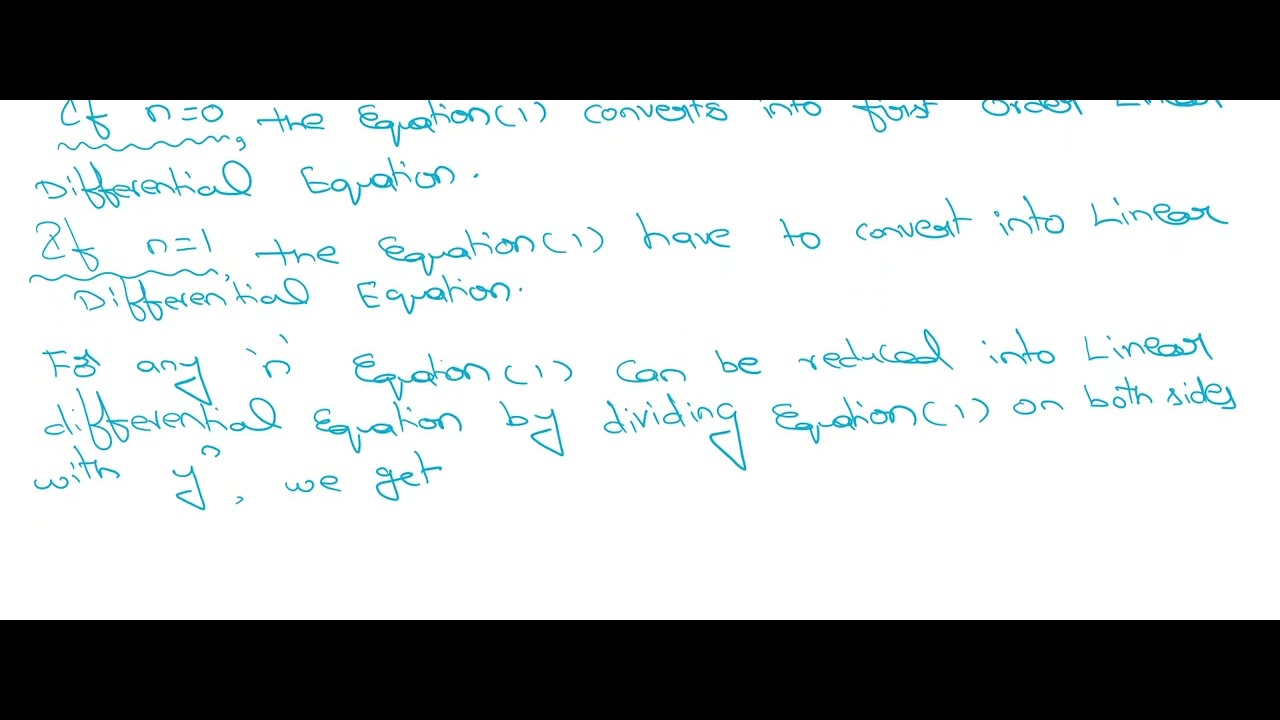 If n=0, the Equation(1) converts into first order Linear
Differential Equation.
If n=1, the Equation(1) have to convert into Linear
Differential Equation.
For any 'n' Equation(1) can be reduced into Linear
differential Equation by dividing Equation(1) on both sides
with yⁿ, we get